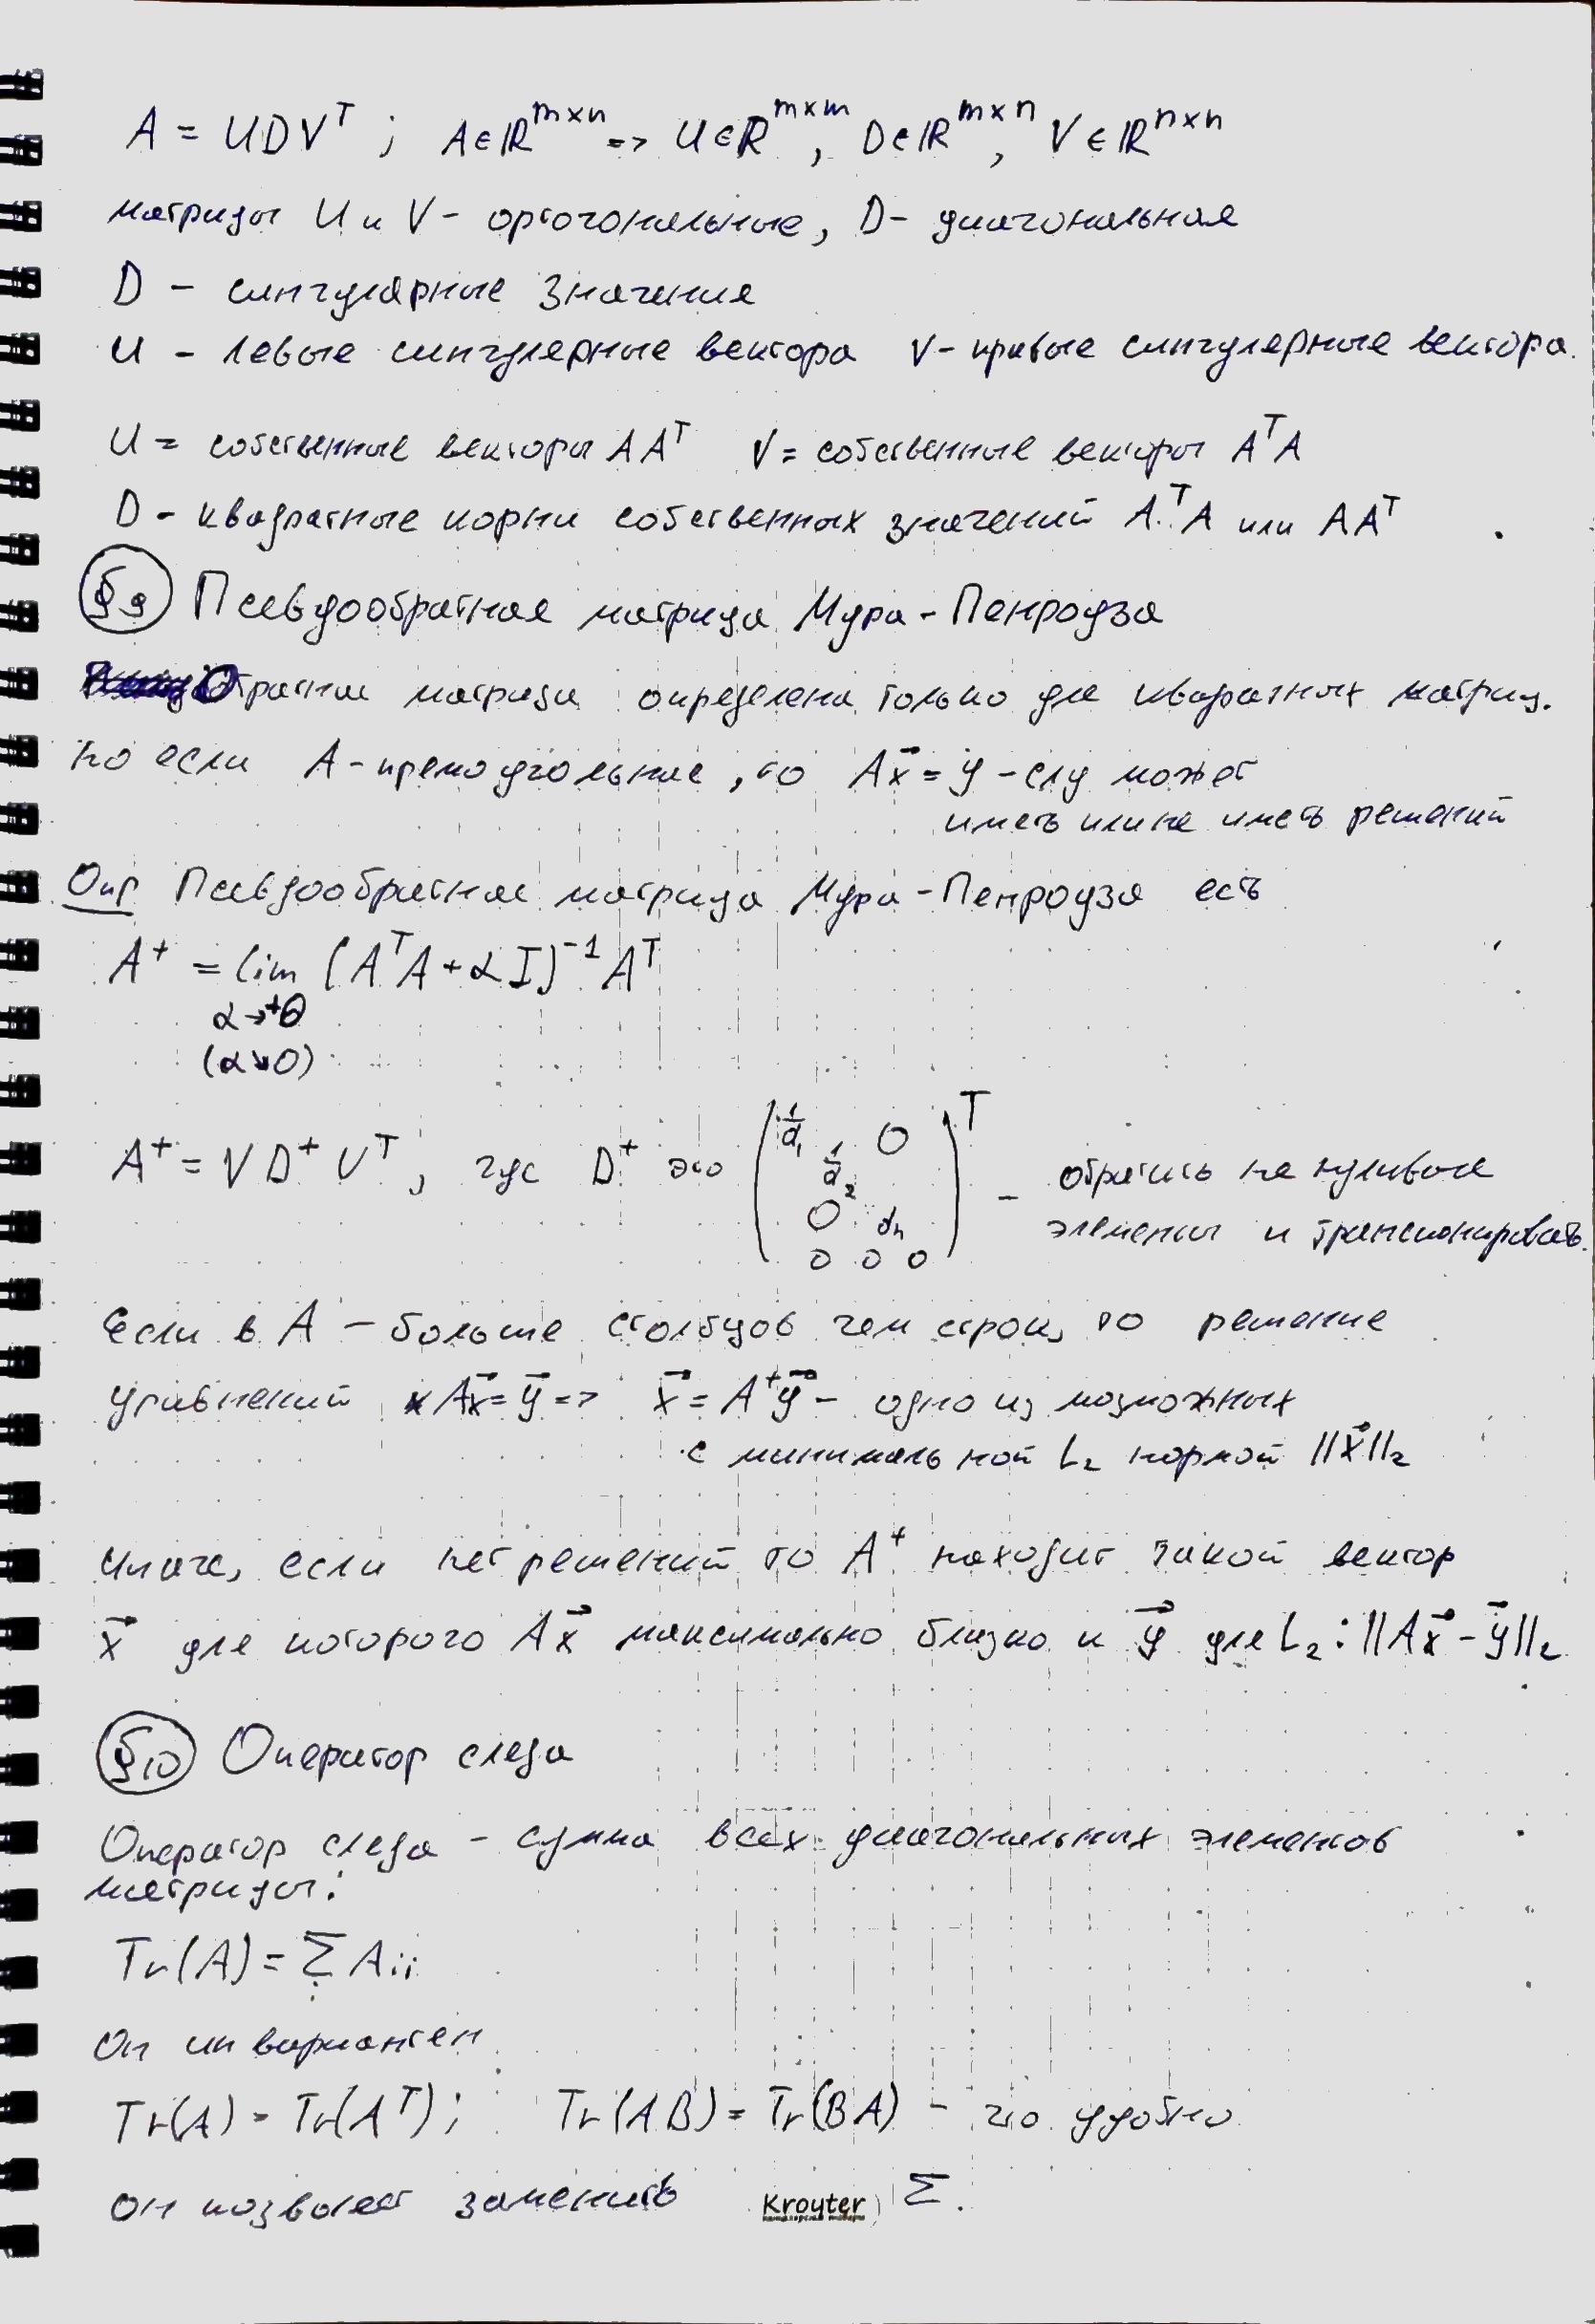 A = UDVᵀ ; A∈ℝᵐˣⁿ => U∈ℝᵐˣᵐ, D∈ℝᵐˣⁿ, V∈ℝⁿˣⁿ
матрицы U и V - ортогональные, D - диагональная
D - сингулярные значения
U - левые сингулярные вектора V - правые сингулярные вектора.
U = собственные векторы AAᵀ V = собственные векторы AᵀA
D - квадратные корни собственных значений AᵀA или AAᵀ
§9 Псевдообратная матрица Мура-Пенроуза
Обратная матрица определена только для квадратных матриц.
но если A - прямоугольная, то Ax⃗ = y - слу может
иметь или не иметь решений
Опр Псевдообратная матрица Мура-Пенроуза есть
A⁺ = lim (AᵀA + αI)⁻¹Aᵀ
α→+0
(α↘0)
A⁺ = VD⁺Uᵀ, где D⁺ это (1/d₁ 1/d₂ 0 0 dₙ 0 0 0)ᵀ - обратить не нулевые
элементы и транспонировать.
Если в A - больше столбцов чем строк, то решение
уравнений Ax⃗ = y⃗ => x⃗ = A⁺y⃗ - одно из возможных
с минимальной L₂ нормой ||x⃗||₂
Иначе, если нет решений то A⁺ находит такой вектор
x⃗ для которого Ax⃗ максимально близко к y⃗ для L₂: ||Ax⃗ - y⃗||₂
§10 Оператор следа
Оператор следа - сумма всех диагональных элементов
матрицы:
Tr(A) = Σ Aᵢᵢ
Он инвариантен
Tr(A) = Tr(Aᵀ); Tr(AB) = Tr(BA) - что удобно
он позволяет заменить Krouter Σ.